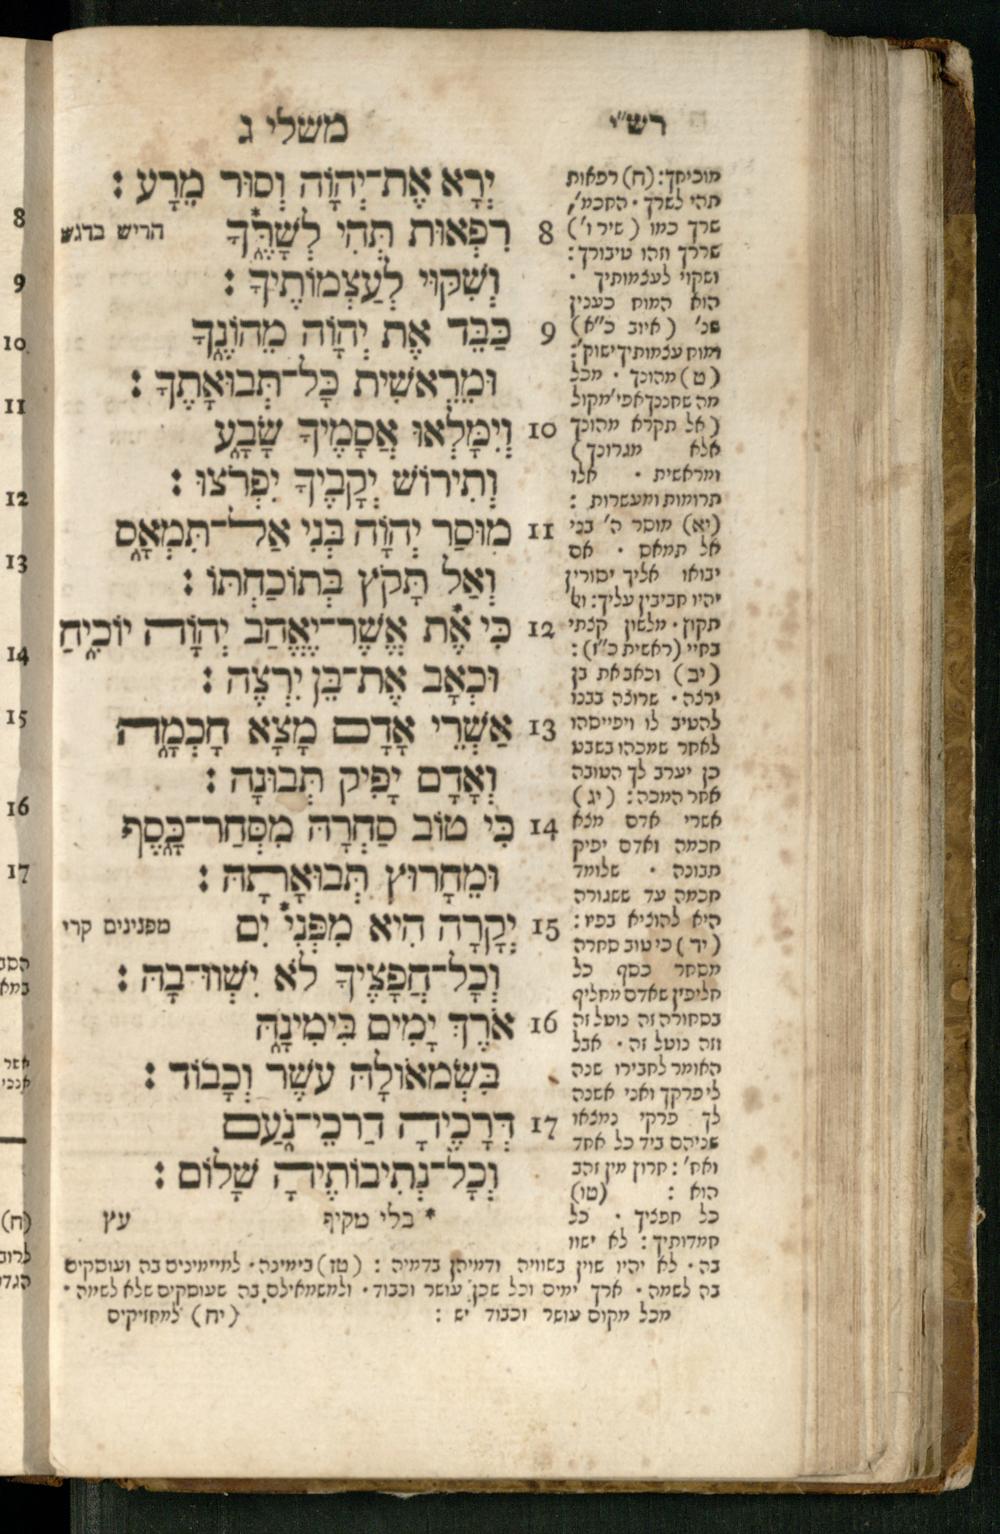 משלי ג
יְרָא אֶת־יְהוָֹה וְסוּר מֵרָע׃
8 רִפְאוּת תְּהִי לְשָׁרֶּ֑ךָ
הריש בדגש
וְשִׁקּוּי לְעַצְמוֹתֶיךָ׃
9 כַּבֵּד אֶת יְהוָֹה מֵהוֹנֶ֑ךָ
וּמֵרֵאשִׁית כָּל־תְּבוּאָתֶךָ׃
10 וְיִמָּלְאוּ אֲסָמֶיךָ שָׂבָ֑ע
וְתִירוֹשׁ יְקָבֶיךָ יִפְרֹצוּ׃
11 מוּסַר יְהוָֹה בְּנִי אַל־תִּמְאָ֑ס
וְאַל תָּקֹץ בְּתוֹכַחְתּוֹ׃
12 כִּי אֶ֯ת אֲשֶׁר־יֶאֱהַב יְהוָֹה יוֹכִ֑יחַ
וּכְאָב אֶת־בֵּן יִרְצֶה׃
13 אַשְׁרֵי אָדָם מָצָא חָכְמָ֑ה
וְאָדָם יָפִיק תְּבוּנָה׃
14 כִּי טוֹב סַחְרָהּ מִסְּחַר־כָּ֑סֶף
וּמֵחָרוּץ תְּבוּאָתָהּ׃
15 יְקָרָה הִיא מִפְּנִי* יִם
מפנינים קרי
וְכָל־חֲפָצֶיךָ לֹא יִשְׁווּ־בָהּ׃
16 אֹרֶךְ יָמִים בִּימִינָ֑הּ
בִּשְׂמֹאולָהּ עֹשֶׁר וְכָבוֹד׃
17 דְּרָכֶיהָ דַרְכֵי־נֹ֑עַם
וְכָל־נְתִיבוֹתֶיהָ שָׁלוֹם׃
* בלי מקיף
עץ
רש״י
מוכיחך׃ (ח) רפאות
תהי לשרך ·
שרך כמו (שיר ו׳)
שררך וזהו טיבורך׃
ושקוי לעצמותיך ·
הוא המוח כענין
שנ׳ (איוב כ״א)
ומוח עצמותיך ישוק׳׃
(ט) מהונך · מכל
מה שחננך אפי׳ מקול
(אל תקרא מהונך
אלא מגרונך)
ומראשית · אלו
תרומות ומעשרות׃
(יא) מוסר ה׳ בני
אל תמאס · אם
יבואו אליך יסורין
יהיו חביבין עליך׃ ול
תקוץ · מלשון קצתי
בחיי (ראשית כ״ז)׃
(יב) וכאב את בן
ירצה · שרוצה בבנו
להטיב לו ויפייסהו
לאחר שמכהו בשבט
כן יערב לך הטובה
אחר המכה׃ (יג)
אשרי אדם מצא
חכמה ואדם יפיק
תבונה · שלומד
חכמה עד ששגורה
היא להוציא בפיו׃
(יד) כי טוב סחרה
מסחר כסף כל
חליפין שאדם מחליף
בסחורה זה נוטל זה
וזה נוטל זה · אבל
האומר לחבירו שנה
לי פרקך ואני אשנה
לך פרקי נמצאו
שניהם ביד כל אחד
ואח׳׃ חרוץ מין זהב
הוא׃ (טו)
כל חפציך · כל
חמדותיך׃ לא ישוו
בה · לא יהיו שוין בשוויה ודמיהן בדמיה׃ (טז) בימינה · למיימינים בה ועוסקים
בה לשמה · ארך ימים וכל שכן עושר וכבוד · ולמשמאילם בה שעוסקים שלא לשמה ·
מכל מקום עושר וכבוד יש׃ (יח) למחזיקים
8
9
10
11
12
13
14
15
16
17